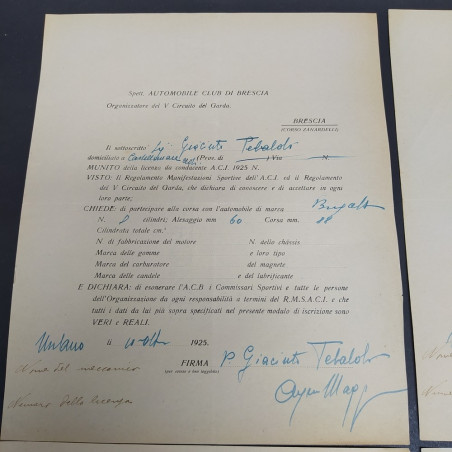 Spett. AUTOMOBILE CLUB DI BRESCIA
Organizzatore del V Circuito del Garda.
BRESCIA
(CORSO ZANARDELLI)
Il sottoscritto Sig Giacinto Tebaldi
domiciliato a (Prov. di ) Via N.
MUNITO della licenza da conducente A.C.I. 1925 N.
VISTO: Il Regolamento Manifestazioni Sportive dell'A.C.I. ed il Regolamento
del V Circuito del Garda, che dichiara di conoscere e di accettare in ogni
loro parte;
CHIEDE: di partecipare alla corsa con l'automobile di marca
N. cilindri; Alesaggio mm 60 Corsa mm. 88
Cilindrata totale cm.³
N. di fabbricazione del motore N. dello châssis
Marca delle gomme e loro tipo
Marca del carburatore del magnete
Marca delle candele e del lubrificante
E DICHIARA: di esonerare l'A.C.B. i Commissari Sportivi e tutte le persone
dell'Organizzazione da ogni responsabilità a termini del R.M.S.A.C.I. e che
tutti i dati da lui più sopra specificati nel presente modulo di iscrizione sono
VERI e REALI.
Milano li 1925.
FIRMA P. Giacinto Tebaldi
Nome del meccanico
Numero della licenza